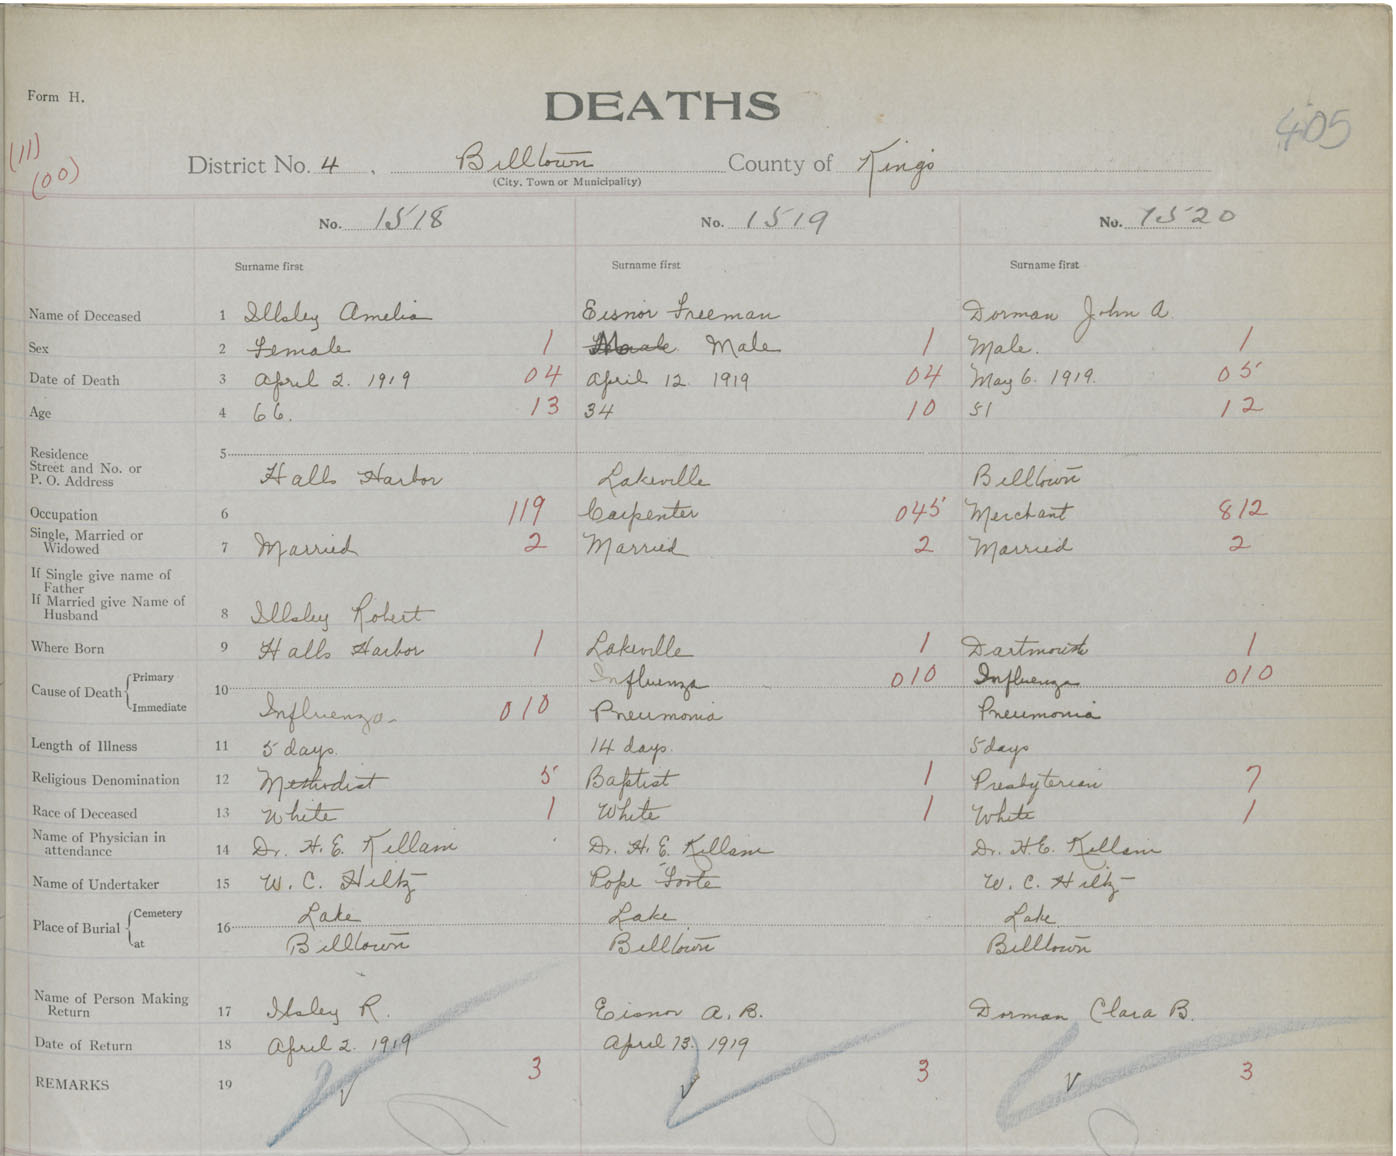 Form H.
DEATHS
405
(11)
(00)
District No. 4 , Billtown County of Kings
(City, Town or Municipality)
No. 1518 No. 1519 No. 1520
Surname first Surname first Surname first
Name of Deceased 1 Illsley Amelia Eisnor Freeman Dorman John A.
Sex 2 Female 1 Male 1 Male. 1
Date of Death 3 April 2. 1919 04 April 12. 1919 04 May 6. 1919. 05
Age 4 66. 13 34 10 51 12
Residence 5
Street and No. or
P. O. Address Halls Harbor Lakeville Billtown
Occupation 6 119 Carpenter 045 Merchant 812
Single, Married or
Widowed 7 Married 2 Married 2 Married 2
If Single give name of
Father
If Married give Name of
Husband 8 Illsley Robert
Where Born 9 Halls Harbor 1 Lakeville 1 Dartmouth 1
Cause of Death Primary 10 Influenza 010 Influenza 010
Immediate Influenza 010 Pneumonia Pneumonia
Length of Illness 11 5 days. 14 days. 5 days
Religious Denomination 12 Methodist 5 Baptist 1 Presbyterian 7
Race of Deceased 13 White 1 White 1 White 1
Name of Physician in
attendance 14 Dr. H. E. Killam Dr. H. E. Killam Dr. H. E. Killam
Name of Undertaker 15 W. C. Hiltz Pope Foote W. C. Hiltz
Place of Burial Cemetery 16 Lake Lake Lake
at Billtown Billtown Billtown
Name of Person Making
Return 17 Ilsley R. Eisnor A. B. Dorman Clara B.
Date of Return 18 April 2. 1919 April 13. 1919
REMARKS 19 3 3 3